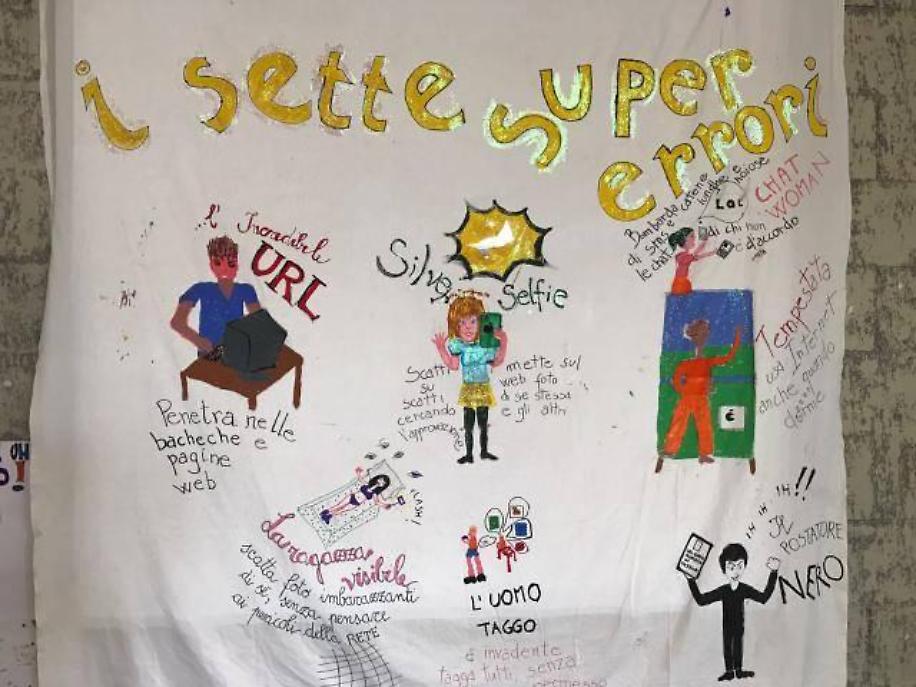 i sette super
errori
l' Incredibile
URL
Penetra nelle
bacheche e
pagine
web
Silver
Selfie
Scatti
su
scatti
cercando
l'approvazione
mette sul
web foto
di se stessa
e gli altri
CHAT
WOMAN
Bombarda
di sms e catene
lunghe e noiose
le chat
di chi non
è d'accordo
LOL
Tempestata
usa Internet
anche quando
dorme
é
La ragazza
visibile
scatta foto imbarazzanti
di sé, senza pensare
ai pericoli della RETE
FLASH!
L'UOMO
TAGGO
è invadente
tagga tutti senza
permesso
IH IH IH IH!!
IL
POSTATORE
NERO
OH
!